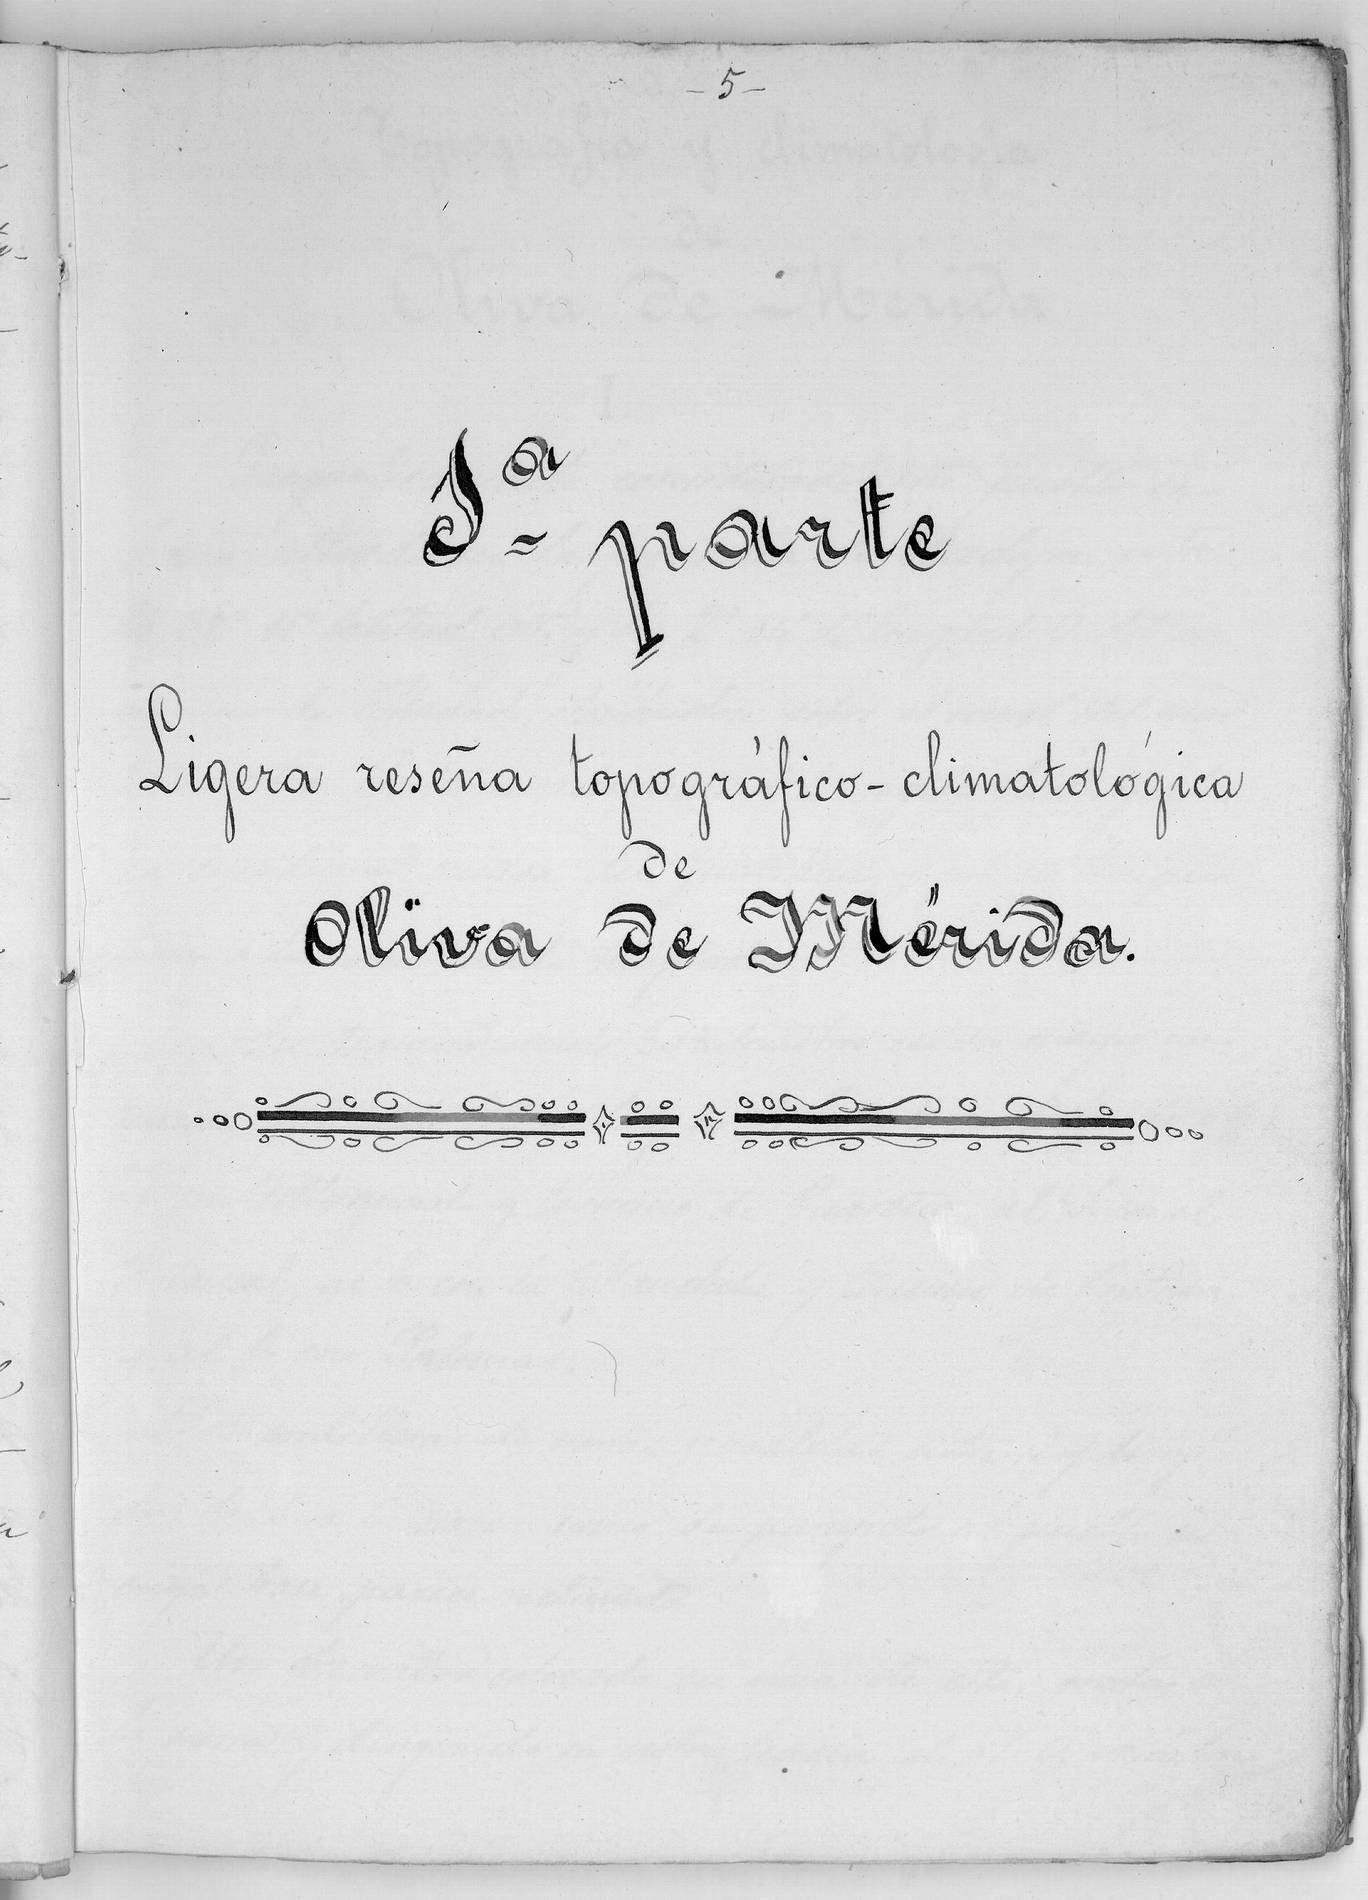 -5-
Iª parte
Ligera reseña topográfico-climatológica
de
Oliva de Mérida.